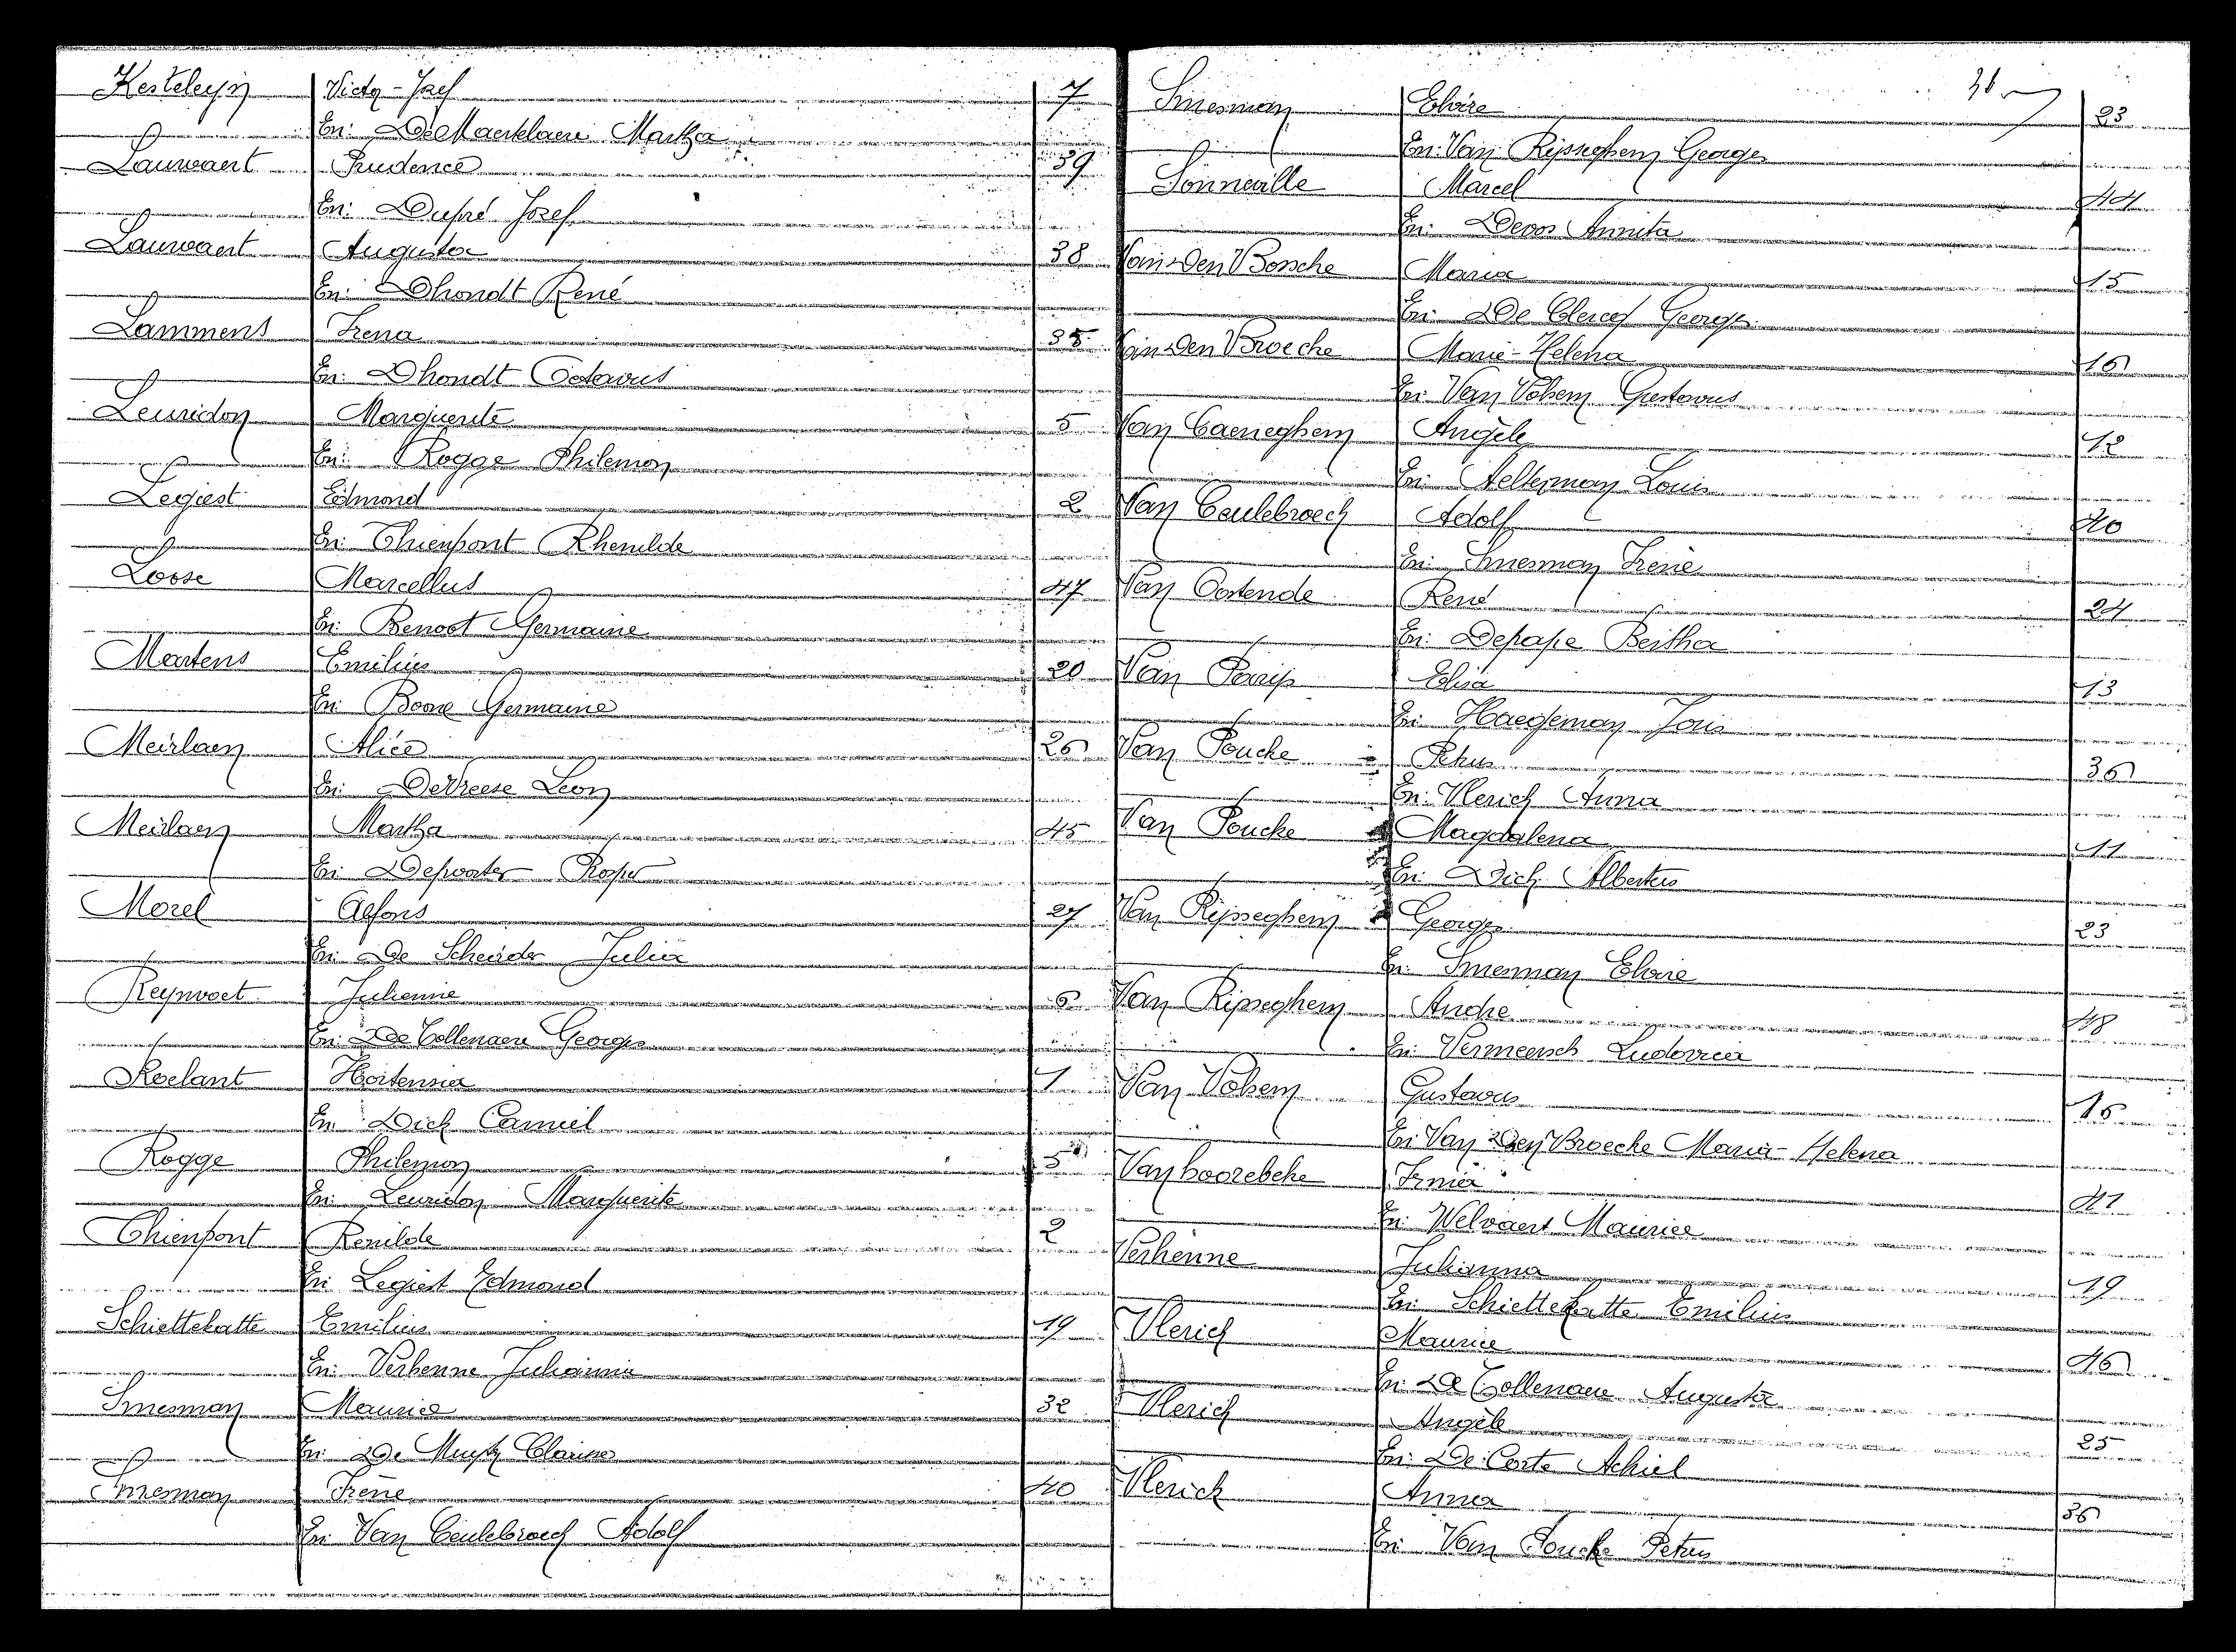 Kesteleyn Victor-Jozef 7
En: DeMaertelaere Martha
Lauwaert Prudence 39
En: Dupré Jozef
Lauwaert Augusta 38
En: Dhondt René
Lammens Irena 35
En: Dhondt Octavus
Leuridon Marguerite 5
En: Rogge Philemon
Legiest Edmond 2
En: Thienpont Rhenilde
Loose Marcellus 47
En: Benoot Germaine
Martens Emilius 20
En: Boone Germaine
Meirlaen Alice 26
En: DeVreese Leon
Meirlaen Martha 45
En: Depoorter Rosper
Morel Alfons 27
En: De Scheirder Julia
Reynvoet Julienne 6
En: De Collenaere Georges
Roelant Hortensia 1
En: Dick Camiel
Rogge Philemon 5
En: Leuridon Marguerite
Thienpont Renilde 2
En: Legiest Edmond
Schiettekatte Emilius 19
En: Verhenne Julianna
Smesman Maurice 32
En: De Muynck Clarisse
Smesman Irène 40
En: Van Ceulebroeck Adolf
36
Smesman Elvire 23
En: Van Rijsseghem Georges
Sonneville Marcel 44
En: Devos Annita
Van Den Bossche Maria 15
En: De Clercq Georges
Van Den Broecke Marie-Helena 16
En: Van Volsem Gustavus
Van Caeneghem Angèle 12
En: Aelterman Louis
Van Ceulebroeck Adolf 40
En: Smesman Irène
Van Oostende René 24
En: Depape Bertha
Van Parijs Elisa 13
En: Haegeman Joris
Van Poucke Petrus 36
En: Vlerick Anna
Van Poucke Magdalena 11
En: Dick Albertus
Van Rijsseghem Georges 23
En: Smesman Elvire
Van Rijsseghem Andre 48
En: Vermeersch Ludovica
Van Volsem Gustavus 16
En: Van Den Broecke Maria-Helena
Vanhoorebeke Irma 41
En: Welvaert Maurice
Verhenne Julianna 19
En: Schiettekatte Emilius
Vlerick Maurice 46
En: De Collenaere Augusta
Vlerick Angèle 25
En: De Corte Achiel
Vlerick Anna 36
En: Van Poucke Petrus